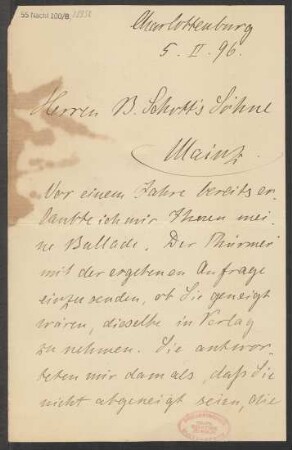 55 Nachl 100/B
Charlottenburg
5. II. 96.
Herren B. Schott's Söhne
Mainz.
Vor einem Jahre bereits er-
laubte ich mir Ihnen mei-
ne Ballade „Der Thürmer“
mit der ergebenen Anfrage
einzusenden, ob Sie geneigt
wären, dieselbe in Verlag
zu nehmen. Sie antwor-
teten mir damals, daß Sie
nicht abgeneigt seien, die